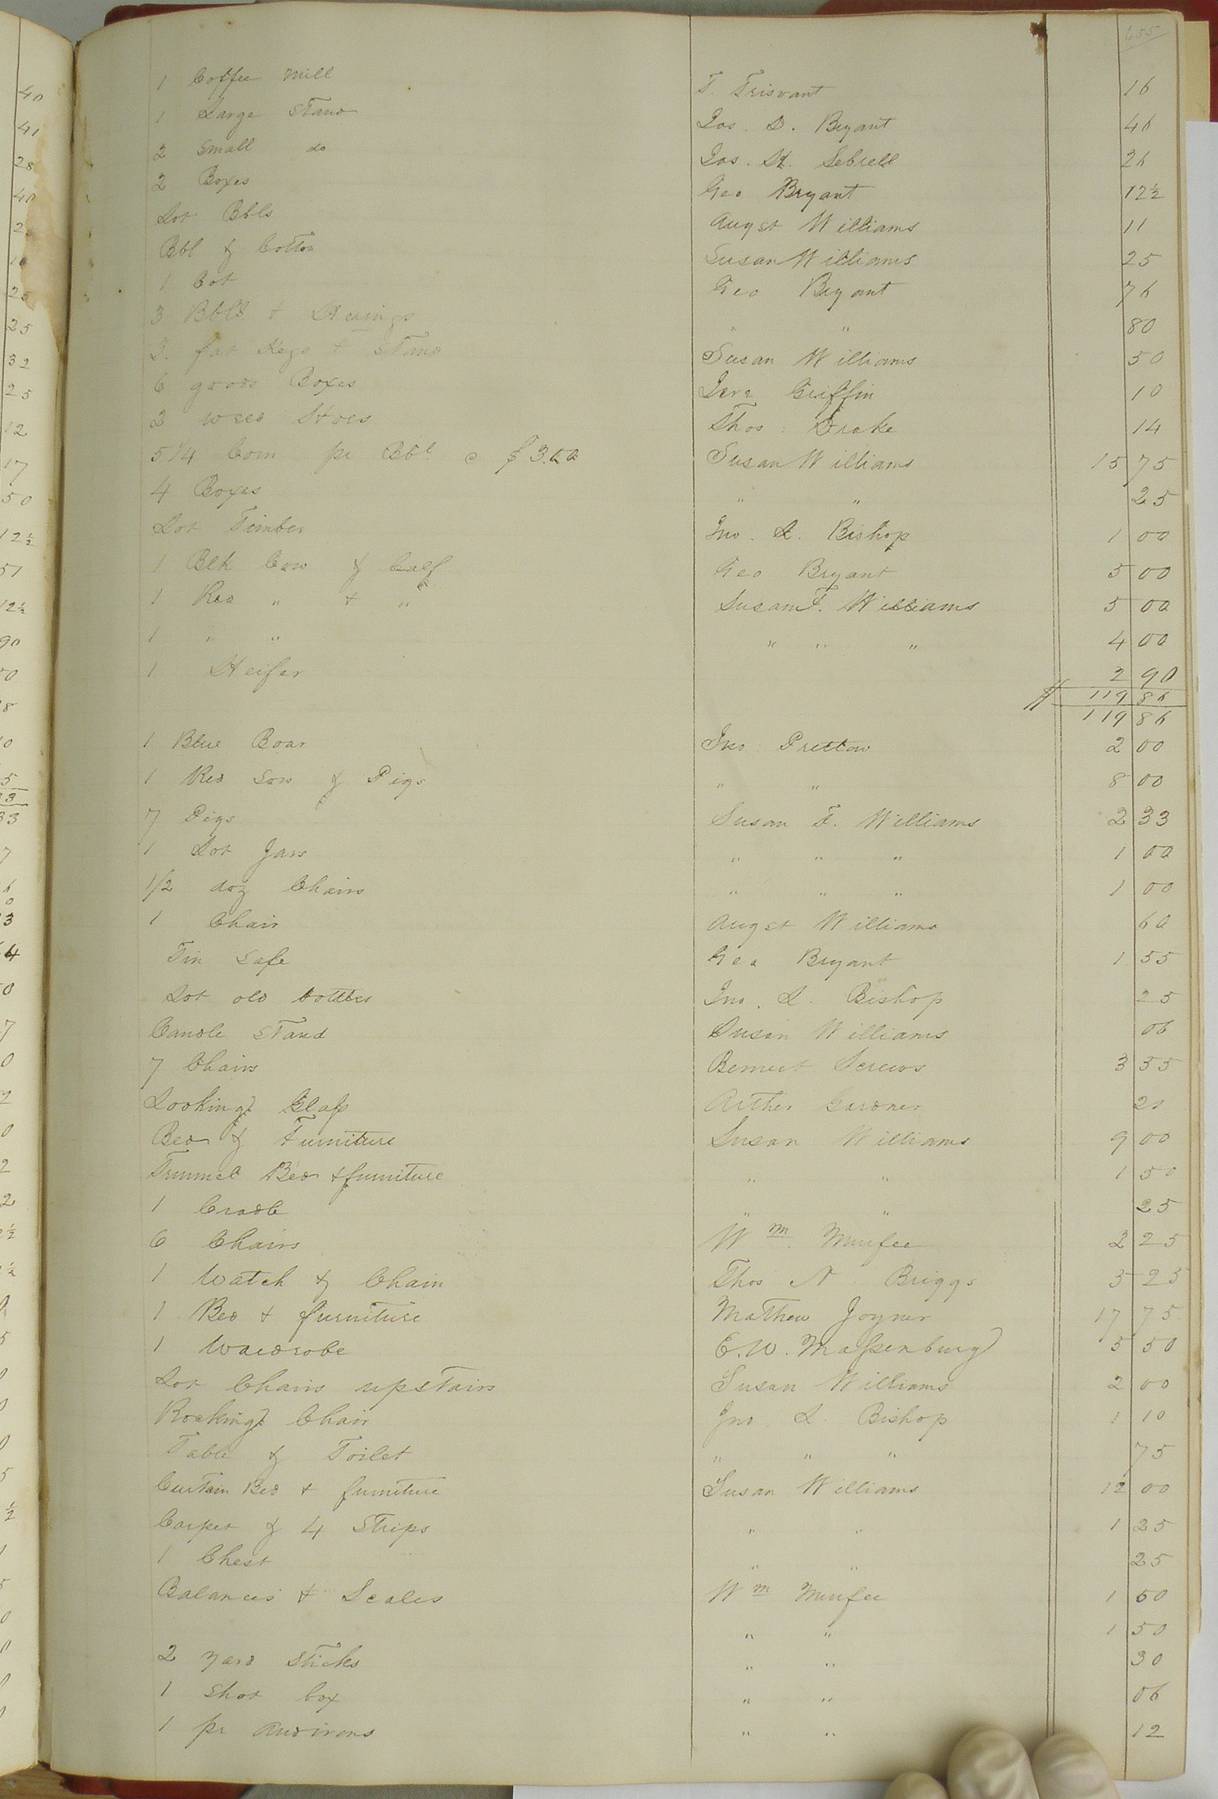 655
1 Coffee Mill T. Trisvant 16
1 Large Stand Jas. D. Bryant 46
2 Small do Jas. H. Sebrell 26
2 Boxes Geo Bryant 12½
Lot Bbls Augst Williams 11
Bbl & Cotton Susan Williams 25
1 Cot Geo Bryant 76
3 Bbls & Herrings " " 80
3 fat Kegs & Stand Susan Williams 50
6 goods Boxes Griffin 10
3 weed Hoes Thos Drake 14
5 1/4 Corn pr Bbl @ $3.00 Susan Williams 15 75
4 Boxes " " 25
Lot Timber Jno. L. Bishop 1 00
1 Blk Cow & Calf Geo Bryant 5 00
1 Red " & " Susan F. Williams 5 00
1 " " " " " 4 00
1 Heifer 2 90
119 86
119 86
1 Blue Boar Jno Pretlow 2 00
1 Red Sow & Pigs " " 8 00
7 Pigs Susan F. Williams 2 33
1 Lot Jars " " " 1 00
1/2 doz Chairs " " " 1 00
1 Chair Augst Williams 60
Tin Safe Geo Bryant 1 55
Lot old bottles Jno. L. Bishop 25
Candle Stand Susan Williams 06
7 Chairs Screws 3 55
Looking Glass Arther Gardner 20
Bed & Furniture Susan Williams 9 00
Trunnel Bed & furniture " " 1 50
1 Cradle " " 25
6 Chairs Wm 2 25
1 Watch & Chain Thos N Briggs 5 25
1 Bed & furniture Mathew Joyner 17 75
1 Wardrobe E. W. Massenburg 5 50
Lot Chairs upstairs Susan Williams 2 00
Rocking Chair Jno L. Bishop 1 10
Table & Toilet " " " 75
Curtain Bed & furniture Susan Williams 12 00
Carpet & 4 Strips " " 1 25
1 Chest " " 25
Balances & Scales Wm 1 50
" " 1 50
2 yard sticks " " 30
1 Shot box " " 06
1 pr Andirons " " 12